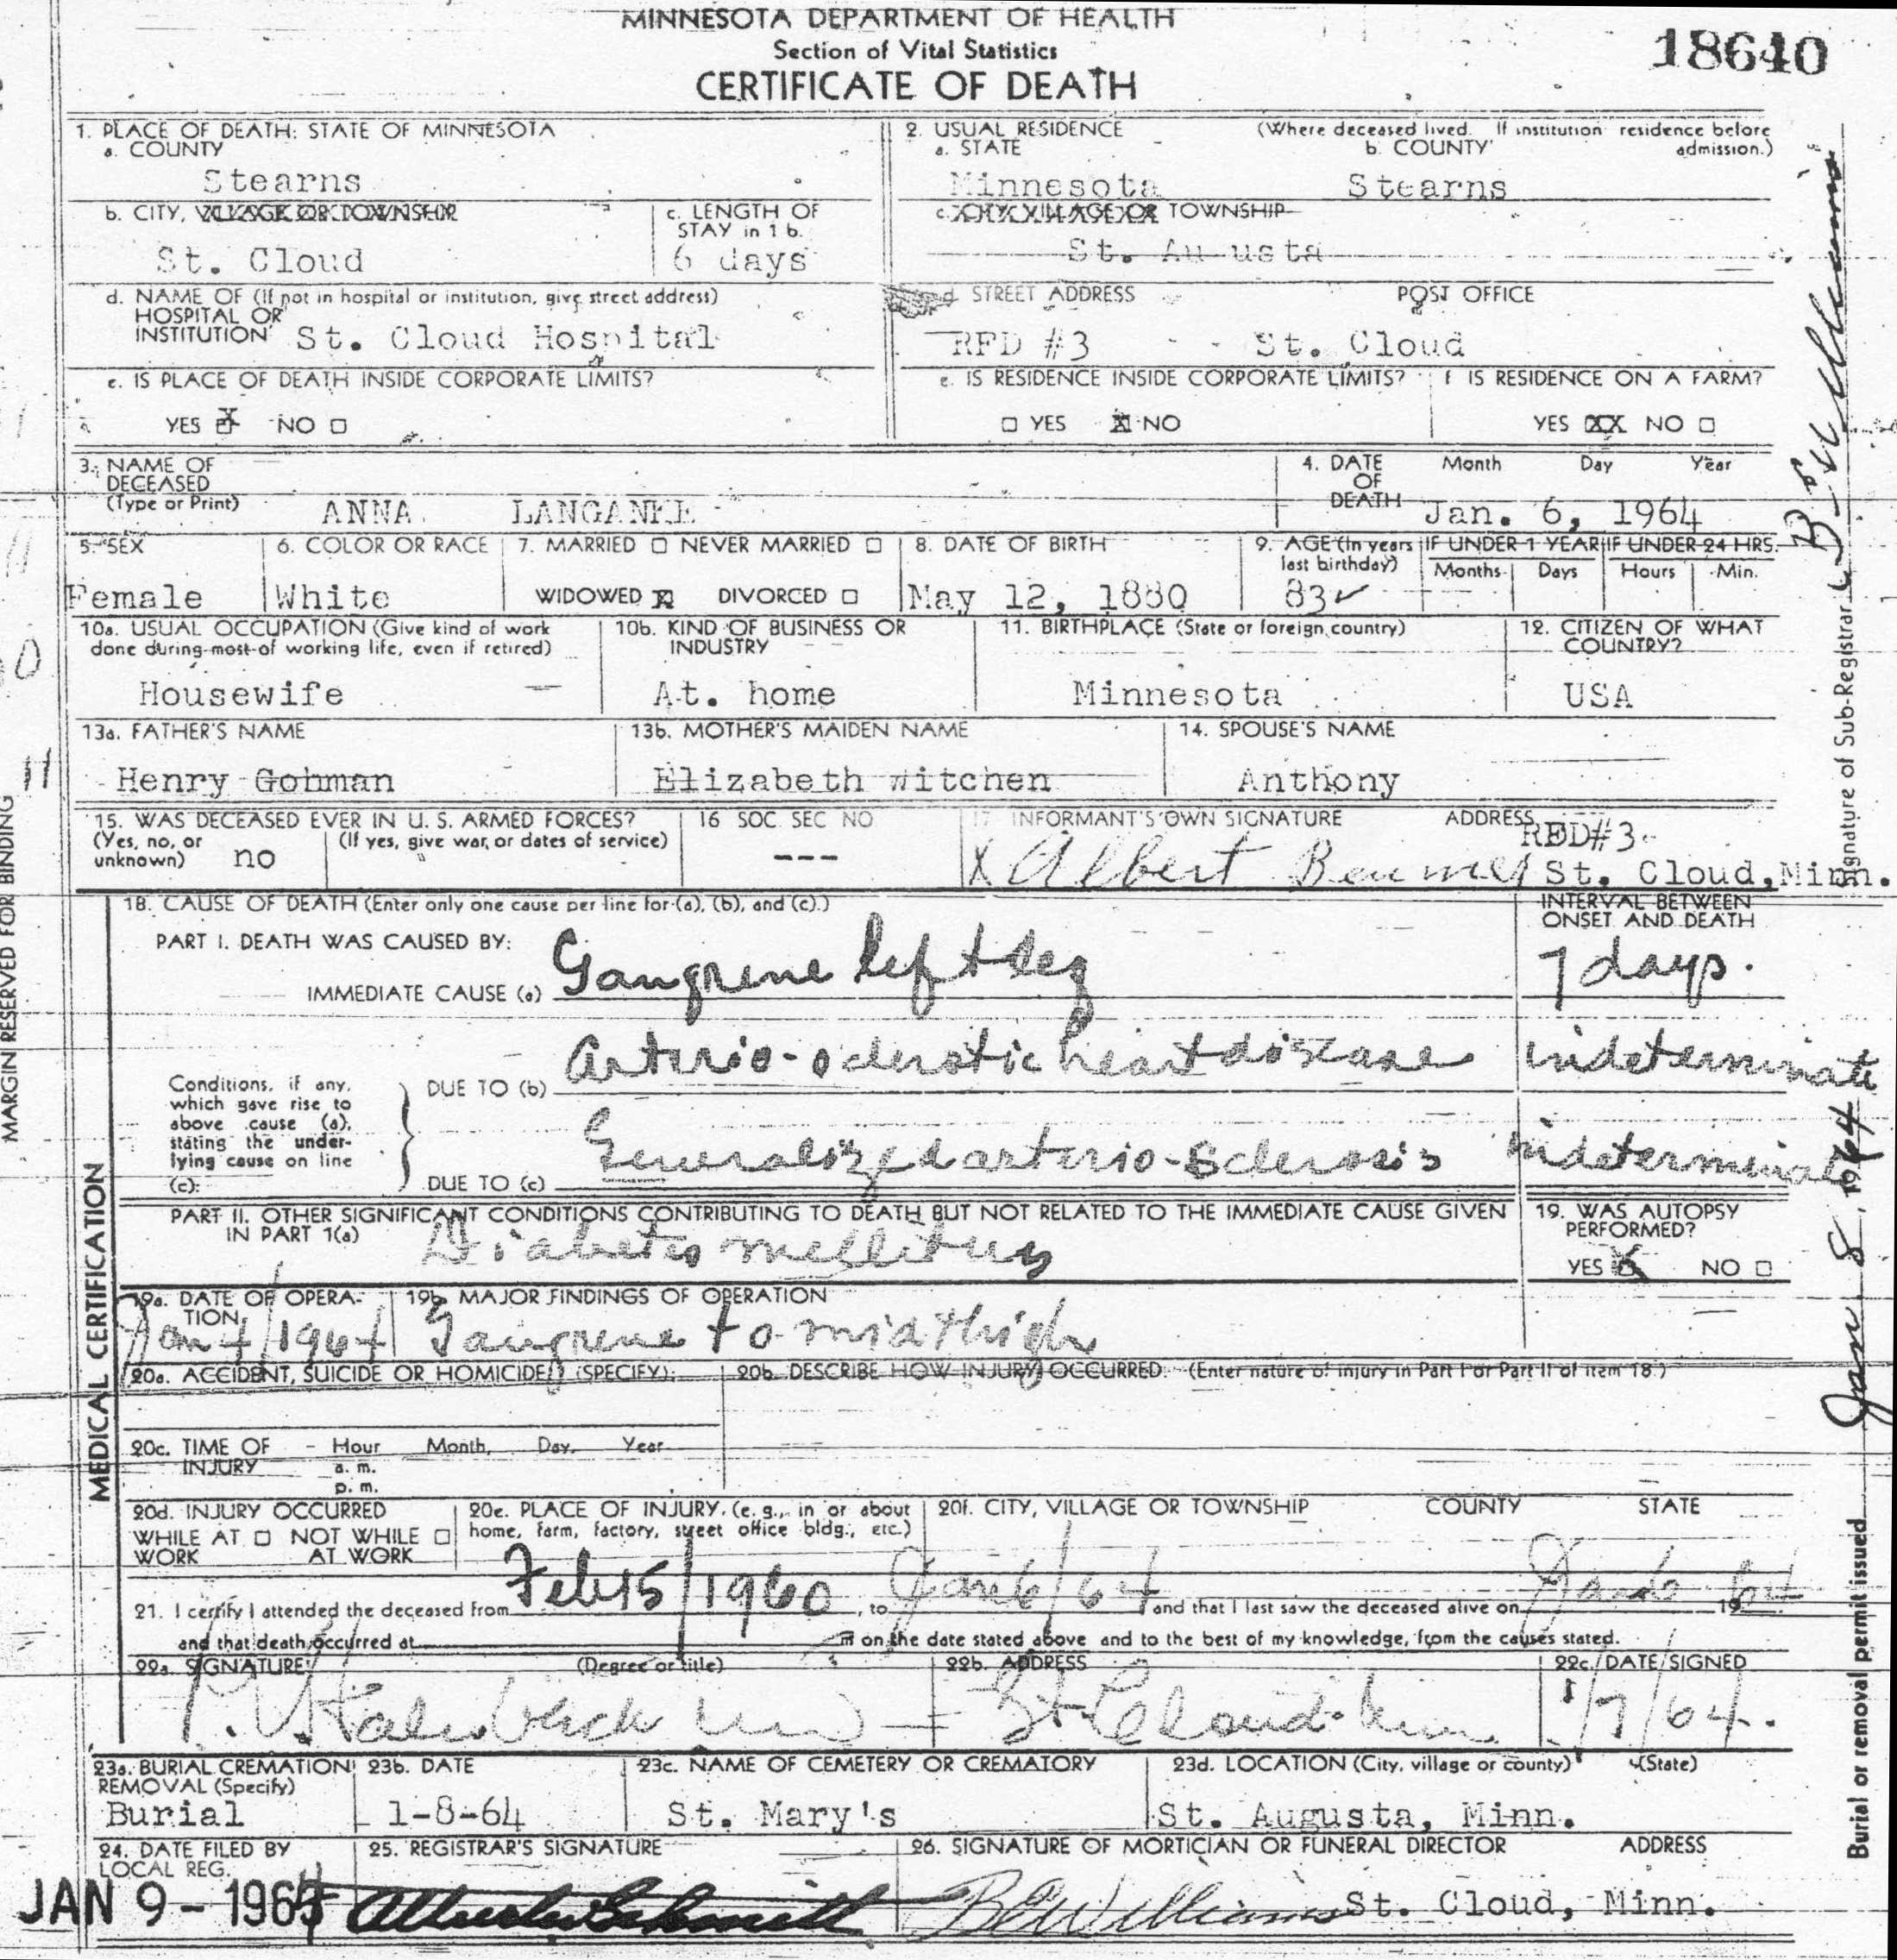 MINNESOTA DEPARTMENT OF HEALTH
Section of Vital Statistics
CERTIFICATE OF DEATH
18640
1. PLACE OF DEATH: STATE OF MINNESOTA
a. COUNTY
Stearns
2. USUAL RESIDENCE (Where deceased lived. If institution residence before admission.)
a. STATE b. COUNTY
Minnesota Stearns
b. CITY, VILLAGE OR TOWNSHIP
St. Cloud
c. LENGTH OF STAY in 1 b.
6 days
c. CITY, VILLAGE OR TOWNSHIP
St. Au usta
d. NAME OF (If not in hospital or institution, give street address)
HOSPITAL OR
INSTITUTION St. Cloud Hospital
d. STREET ADDRESS POST OFFICE
RFD #3 - - St. Cloud
e. IS PLACE OF DEATH INSIDE CORPORATE LIMITS?
YES X NO
e. IS RESIDENCE INSIDE CORPORATE LIMITS?
YES X NO
f IS RESIDENCE ON A FARM?
YES XX NO
3. NAME OF
DECEASED
(Type or Print) ANNA LANGANKE
4. DATE OF DEATH
Month Day Year
Jan. 6, 1964
5. SEX
Female
6. COLOR OR RACE
White
7. MARRIED NEVER MARRIED
WIDOWED X DIVORCED
8. DATE OF BIRTH
May 12, 1880
9. AGE (In years last birthday)
83
IF UNDER 1 YEAR
Months Days
IF UNDER 24 HRS.
Hours Min.
10a. USUAL OCCUPATION (Give kind of work
done during most of working life, even if retired)
Housewife
10b. KIND OF BUSINESS OR INDUSTRY
At. home
11. BIRTHPLACE (State or foreign country)
Minnesota
12. CITIZEN OF WHAT COUNTRY?
USA
13a. FATHER'S NAME
Henry Gohman
13b. MOTHER'S MAIDEN NAME
Elizabeth Witchen
14. SPOUSE'S NAME
Anthony
15. WAS DECEASED EVER IN U. S. ARMED FORCES?
(Yes, no, or unknown) (If yes, give war or dates of service)
no
16 SOC. SEC NO
---
17 INFORMANT'S OWN SIGNATURE ADDRESS
X Albert RFD#3
St. Cloud, Minn.
MEDICAL CERTIFICATION
18. CAUSE OF DEATH (Enter only one cause per line for (a), (b), and (c).)
INTERVAL BETWEEN
ONSET AND DEATH
PART I. DEATH WAS CAUSED BY:
IMMEDIATE CAUSE (a) Gangrene left leg 7 days.
Conditions, if any,
which gave rise to
above cause (a),
stating the under-
lying cause on line
(c):
DUE TO (b) arterio-sclerotic heart disease indeterminate
DUE TO (c) Generalized arterio-sclerosis indeterminate
PART II. OTHER SIGNIFICANT CONDITIONS CONTRIBUTING TO DEATH BUT NOT RELATED TO THE IMMEDIATE CAUSE GIVEN
IN PART 1(a) Diabetes mellitus
19. WAS AUTOPSY PERFORMED?
YES X NO
19a. DATE OF OPERA-
TION
Jan 4/1964
19b. MAJOR FINDINGS OF OPERATION
Gangrene to midthigh
20a. ACCIDENT, SUICIDE OR HOMICIDE (SPECIFY):
20b. DESCRIBE HOW INJURY OCCURRED. (Enter nature of injury in Part I or Part II of item 18.)
20c. TIME OF INJURY
Hour Month, Day, Year
a. m.
p. m.
20d. INJURY OCCURRED
WHILE AT WORK NOT WHILE AT WORK
20e. PLACE OF INJURY, (e. g., in or about
home, farm, factory, street office bldg., etc.)
20f. CITY, VILLAGE OR TOWNSHIP COUNTY STATE
21. I certify I attended the deceased from Feb 15/1960, to Jan 6/64 and that I last saw the deceased alive on Jan 6 1964
and that death occurred at m on the date stated above and to the best of my knowledge, from the causes stated.
22a. SIGNATURE (Degree or title)
22b. ADDRESS
St. Cloud. Minn
22c. DATE SIGNED
1/7/64.
23a. BURIAL CREMATION
REMOVAL (Specify)
Burial
23b. DATE
1-8-64
23c. NAME OF CEMETERY OR CREMATORY
St. Mary's
23d. LOCATION (City, village or county) (State)
St. Augusta, Minn.
24. DATE FILED BY
LOCAL REG.
JAN 9 - 1964
25. REGISTRAR'S SIGNATURE
26. SIGNATURE OF MORTICIAN OR FUNERAL DIRECTOR ADDRESS
BEWilliams St. Cloud, Minn.
MARGIN RESERVED FOR BINDING
Burial or removal permit issued Jan 8, 1964
Signature of Sub-Registrar BEWilliams